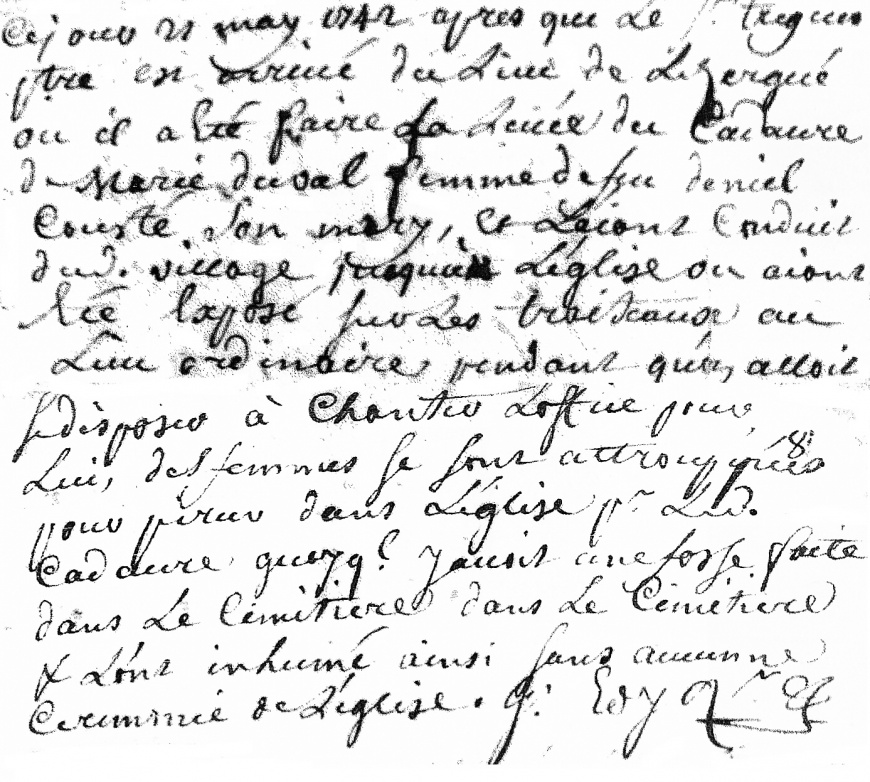 Cejour 21 may 1742 apres que Le Sr. treguer
ptre est arrivé du Lieu de Lezergué
ou il a Eté faire La Levée du Cadavre
de Marie duval femme de feu deniel
Cousté son mary, Et L'aiont Conduit
dud. village jusqu'à L'église ou aiont
Eté Exposé sur Les traiteaux au
Lieu ordinaire, pendant qu'on alloit
se disposer à Chanter L'office pour
Lui, des femmes se sont attrouppées
pour dans L'église pr. Led.
Cadavre quoyq? y avoit une fosse faite
dans Le Cimitiere dans Le Cimétiere
& L'ont inhumé ainsi sans aucunne
Ceremonie de L'église.